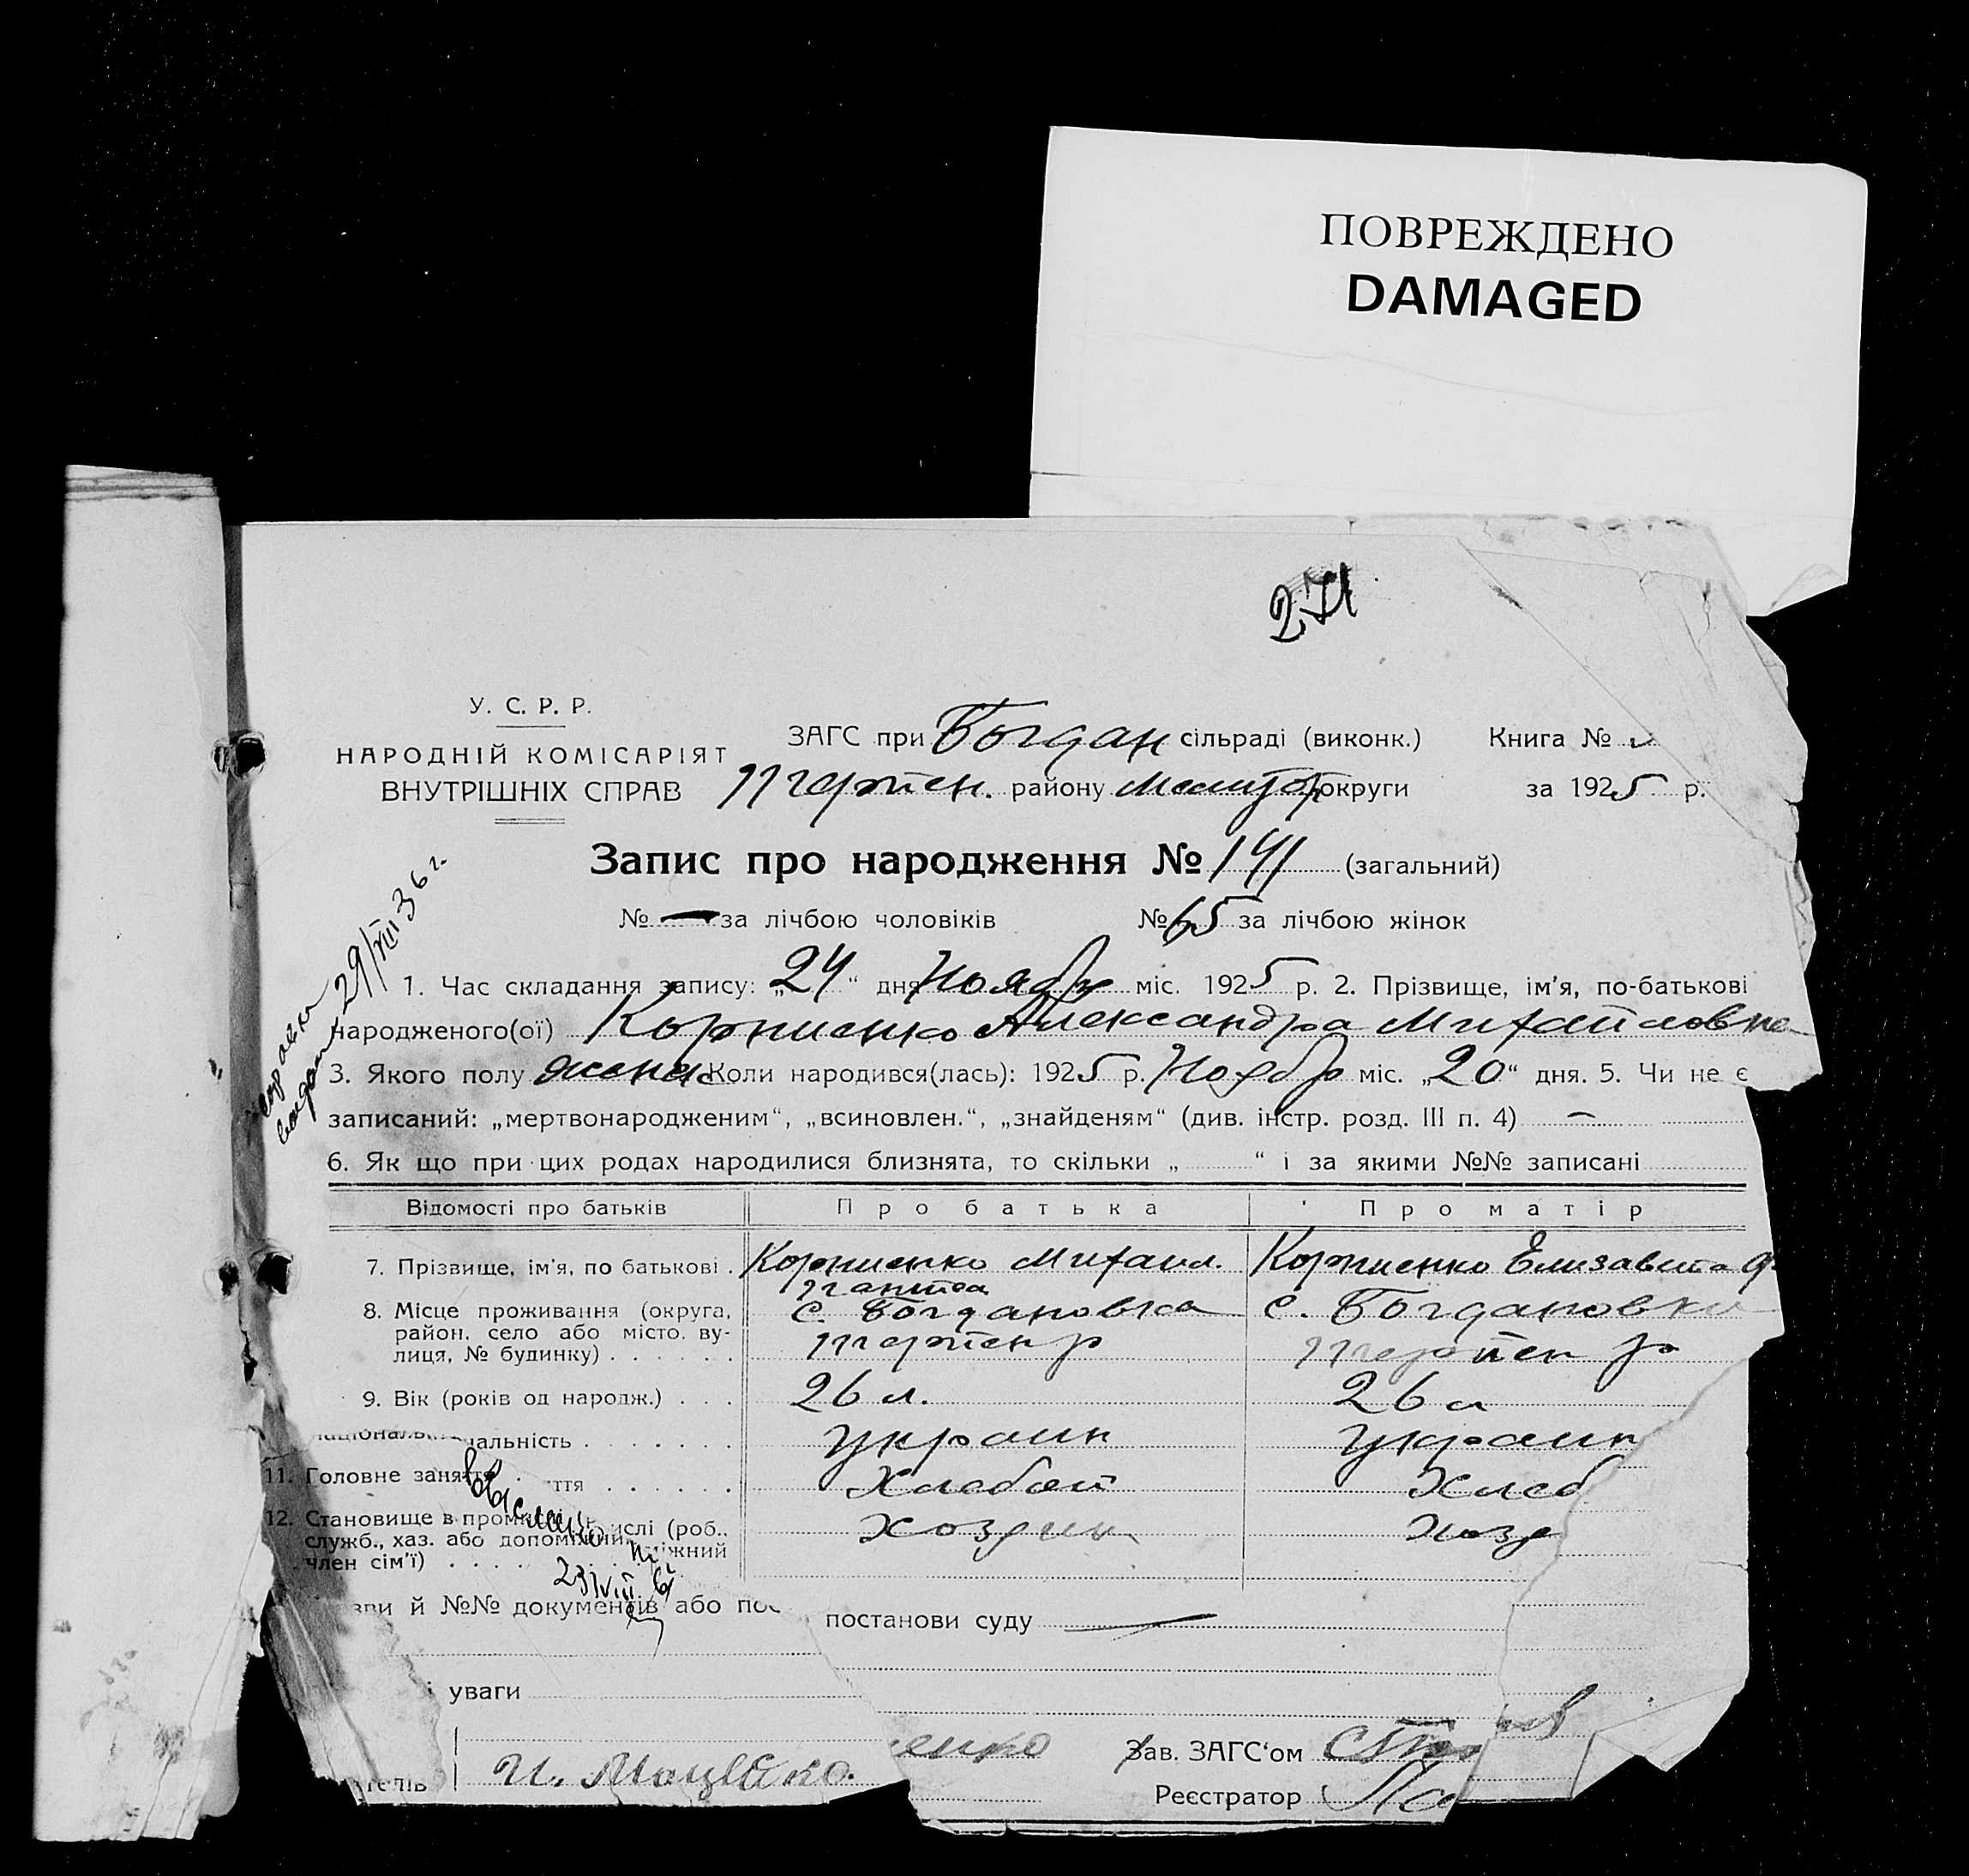 ПОВРЕЖДЕНО
DAMAGED
271
У. С. Р. Р.
НАРОДНІЙ КОМІСАРІЯТ
ВНУТРІШНІХ СПРАВ
ЗАГС при Богдан сільраді (виконк.) Книга №
району округи за 1925 р.
Запис про народження № 141 (загальний)
№ — за лічбою чоловіків № 65 за лічбою жінок
29/VIII 36 г.
1. Час складання запису: „24“ дня Ноября міс. 1925 р. 2. Прізвище, ім'я, по-батькові
народженого(ої) Корниенко Александра Михайловна
3. Якого полу женс Коли народився(лась): 1925 р. Ноябр міс. „20“ дня. 5. Чи не є
записаний: „мертвонародженим“, „всиновлен.“, „знайденям“ (див. інстр. розд. III п. 4) —
6. Як що при цих родах народилися близнята, то скільки „ “ і за якими №№ записані
Відомості про батьків Про батька Про матір
7. Прізвище, ім'я, по батькові . Корниенко Михаил. Корниенко Елизавета
8. Місце проживання (округа, с. Богдановка с. Богдановка
район. село або місто. ву-
лиця, № будинку) . . . . . .
9. Вік (років од народж.) . . . 26 л. 26 л
альність . . . . . . . украин украин
11. Головне заняття . ття . . . . . . Хлебоп Хлеб
12. Становище в промислі (роб.,
служб., хаз. або допоміжний Хозяин Хозя
член сім'ї) . . . .
23/VIII
й №№ документів або пос постанови суду —
уваги
енко Зав. ЗАГС'ом
И.
Реєстратор